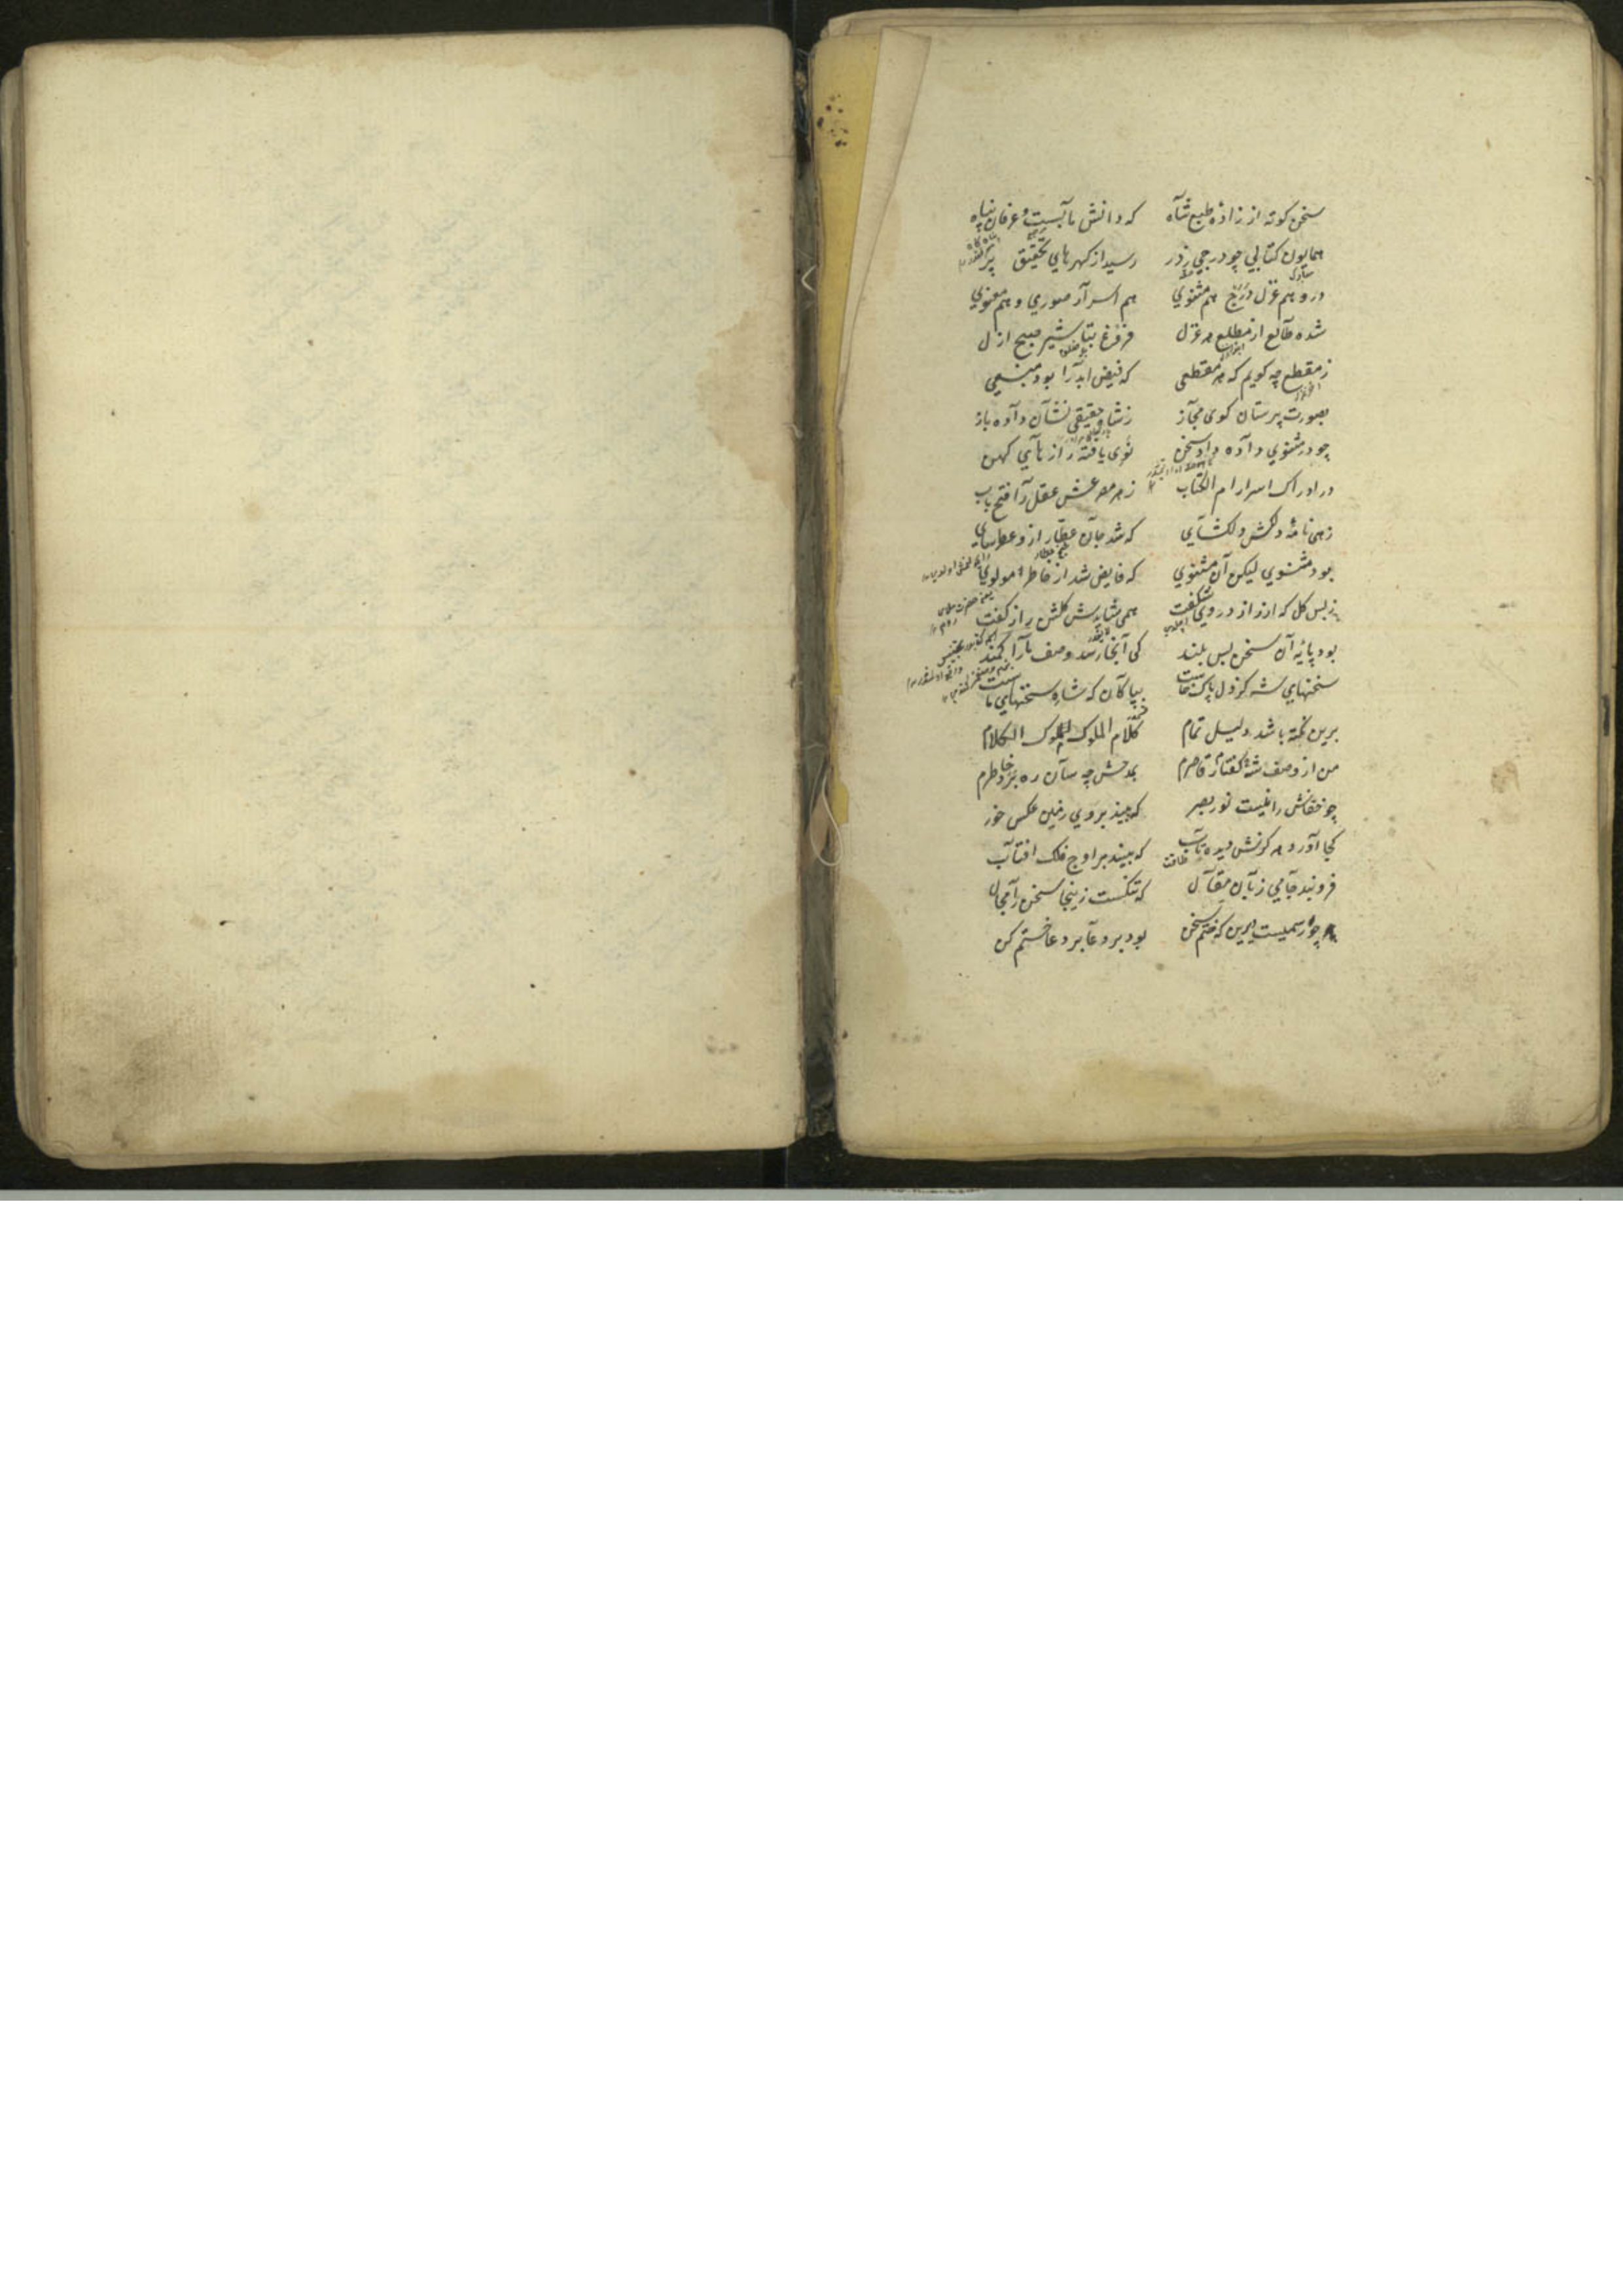 سخن کوته از زادهٔ طبع شاه که دانش مآبست و عرفان پناه
همایون کتابی چو درجی ز در رسید از کهرهای تحقیق پر
درو هم غزل درج هم مثنوی هم اسرار صوری و هم معنوی
شده طالع از مطلع هر غزل فروغ تباشیر صبح ازل
ز مقطع چه کویم که هر مقطعی که فیض ابد را بود منبعی
بصورت پرستان کوی مجاز ز شاه حقیقی نشان داده باز
چو در مثنوی داده داد سخن نوی یافته رازهای کهن
در ادراک اسرار ام الکتاب ز هر مصرعش عقل را فتح باب
زهی نامهٔ دلکش و دلکشای که شد جان عطار ازو عطرسای
بود مثنوی لیکن آن مثنوی که فایض شد از خاطر مولوی
ز بس کل که از راز در وی شکفت همی شایدش کلشن راز کفت
بود پایهٔ آن سخن بس بلند کی آنجا رسد وصف ما را کمند
سخنهای شه کز دل پاک خاست بپاکان که شاه سخنهای ماست
برین نکته باشد دلیل تمام کلام الملوک ملوک الکلام
من از وصف شه کفتار قاصرم بمدحش چه سان ره برد خاطرم
چو خفاش را نیست نور بصر که بیند بروی زمین عکس خور
کجا آورد هر کزش دیده تاب که بیند بر اوج فلک افتاب
طاقت
فرو بند جامی زبان مقال که تنکست زینجا سخن را مجال
چو رسمیست دیرین که ختم سخن بود بر دعا بر دعا ختم کن